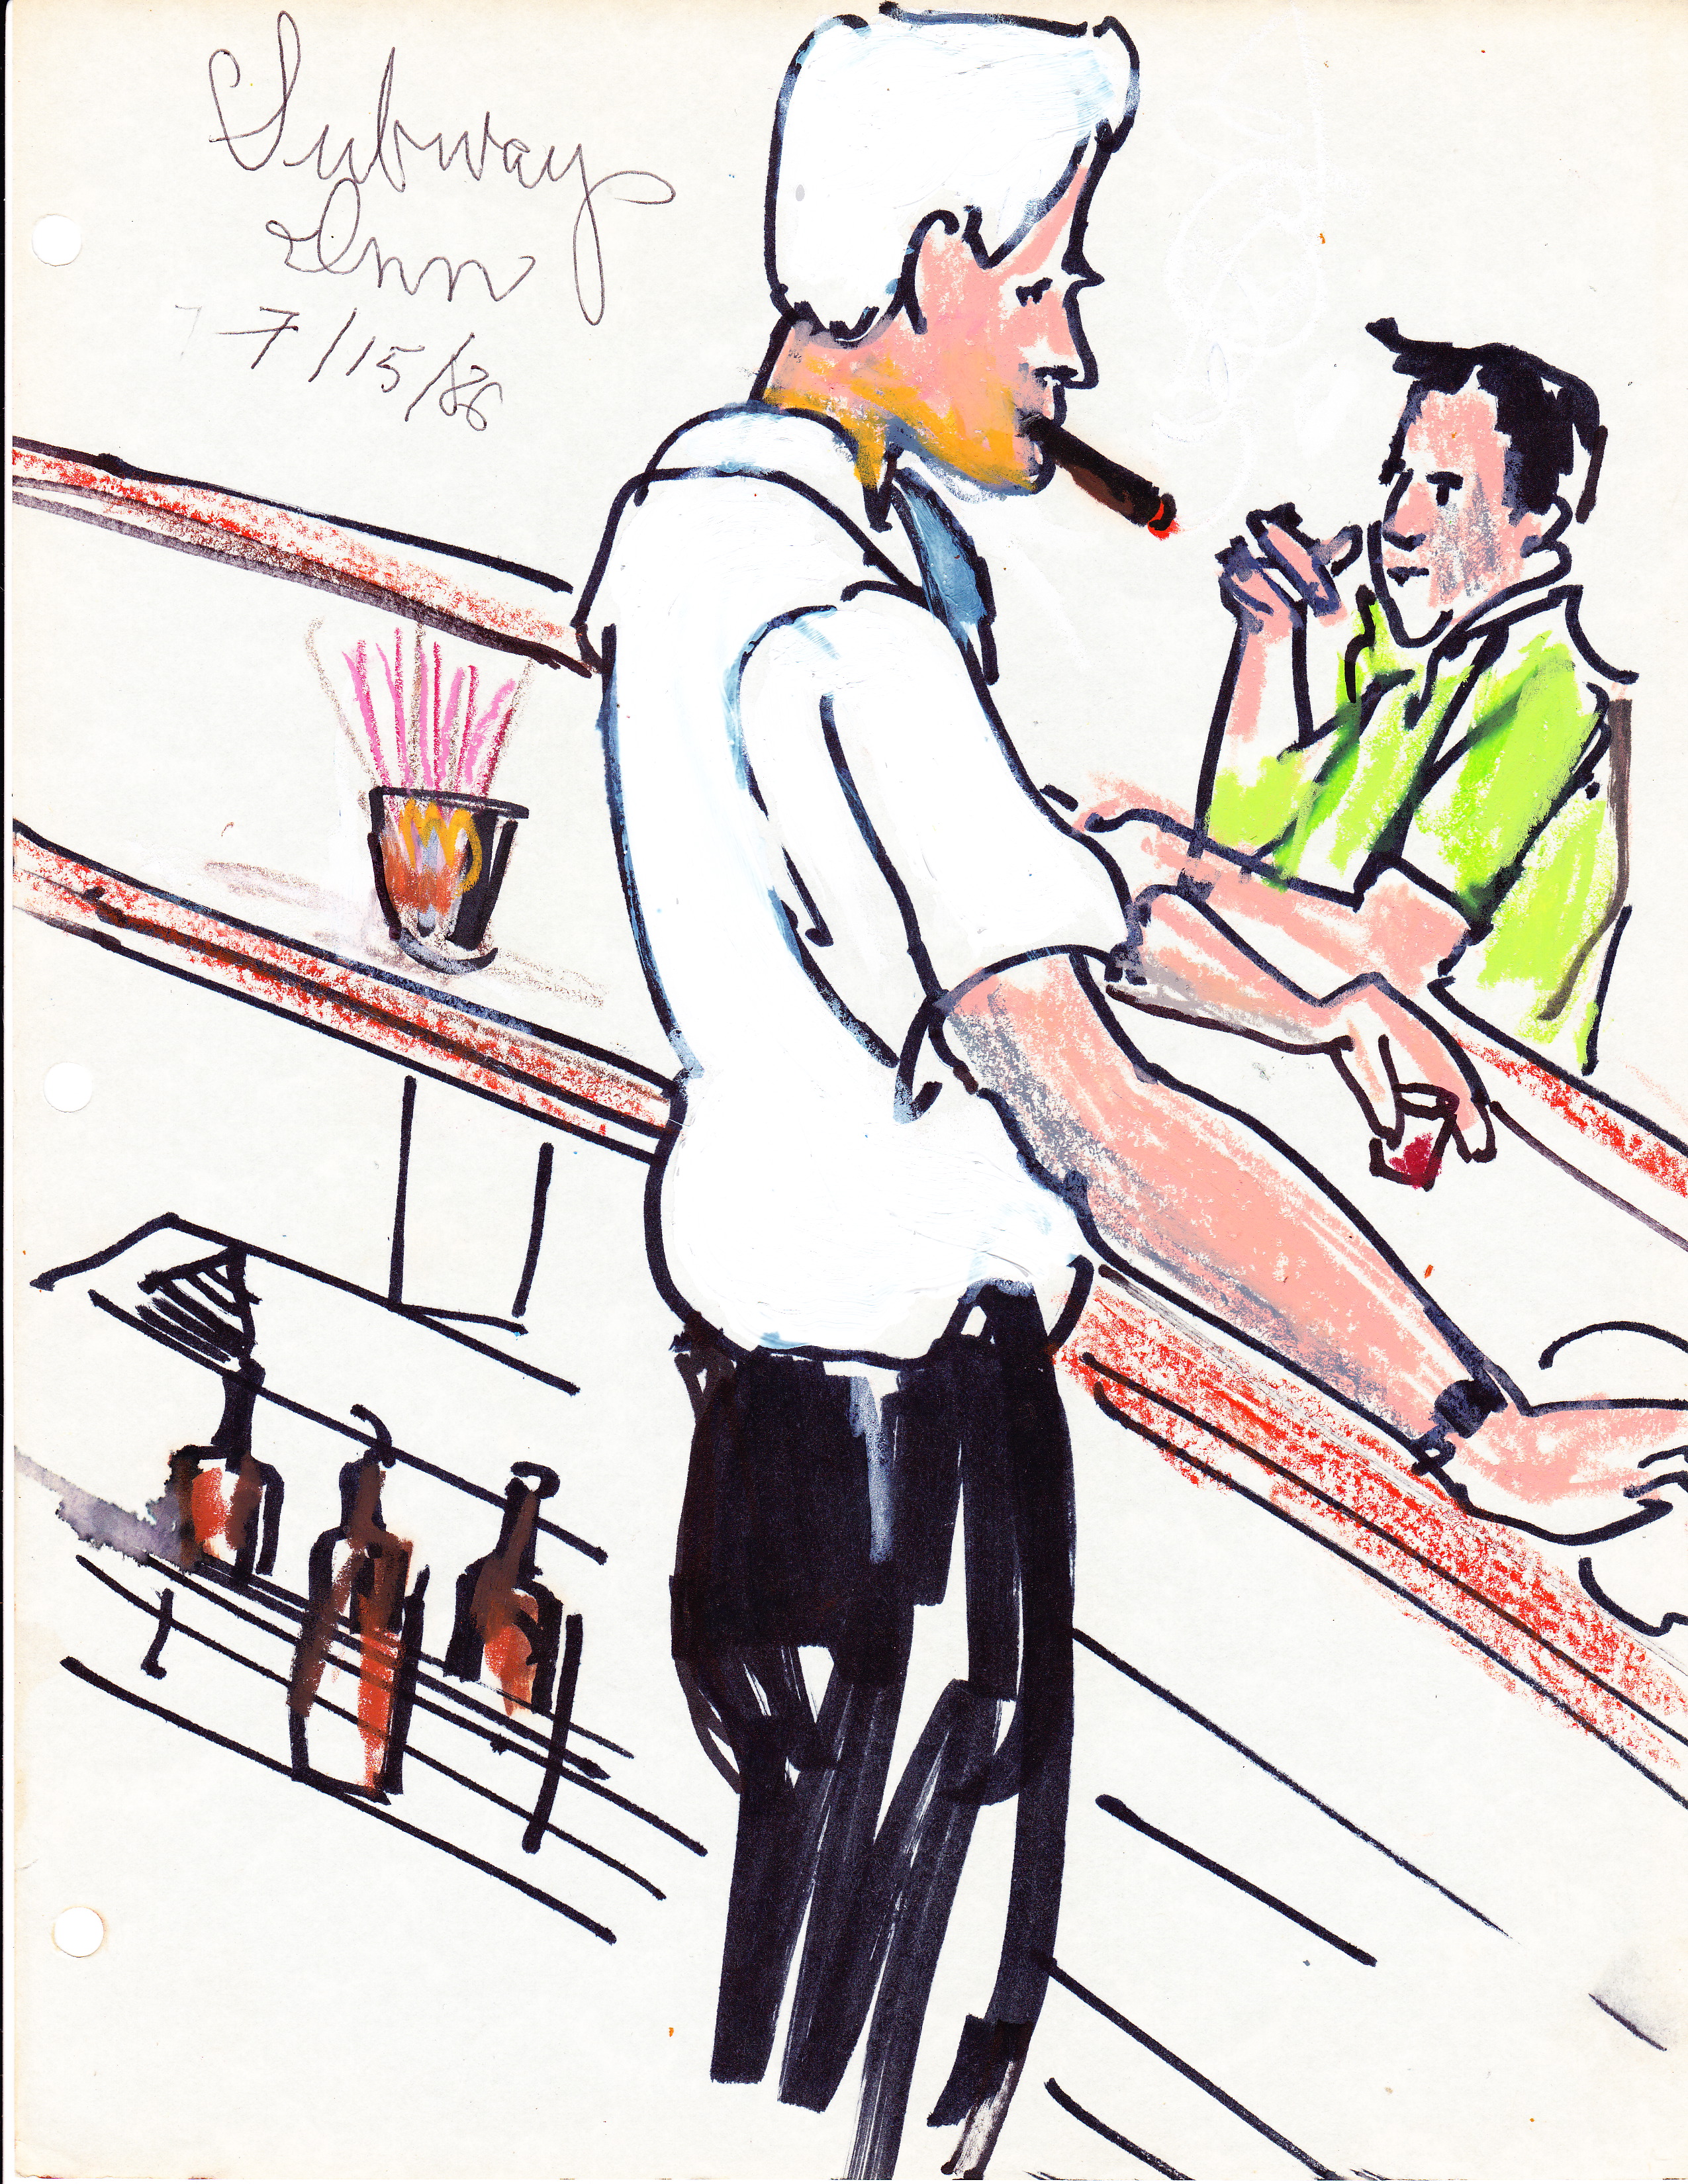 Subway
Inn
7/15/86